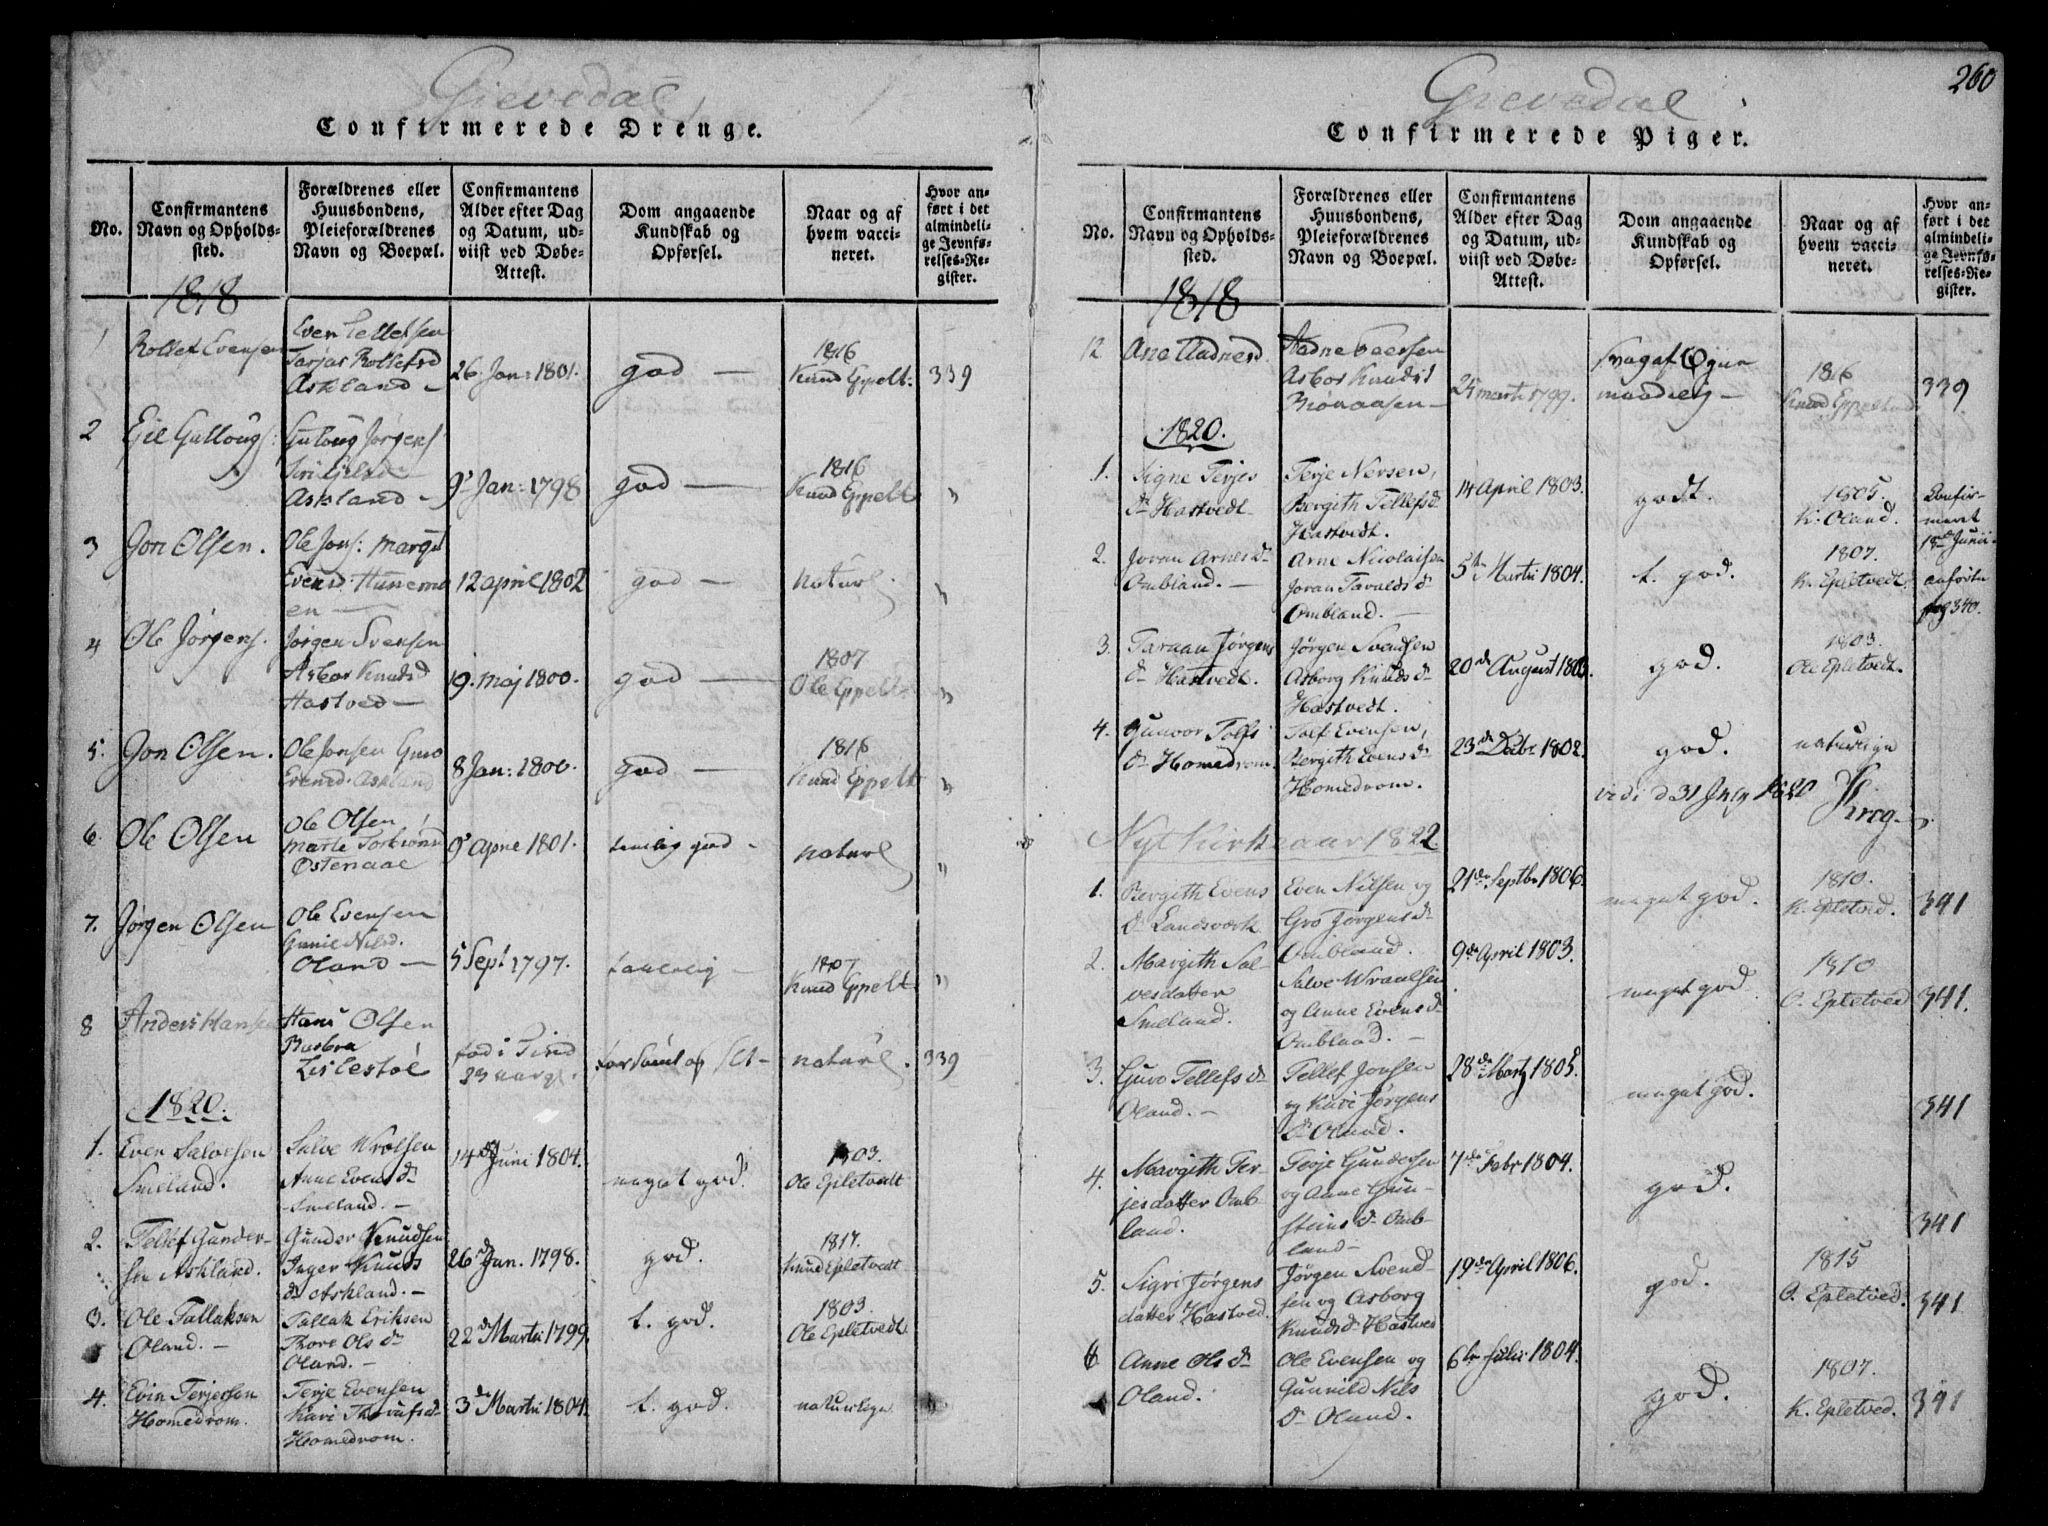 Grevedal
Confirmerede Drenge.
No.
Confirmantens
Navn og Opholds-
sted.
Forældrenes eller
Huusbondens,
Pleieforældrenes
Navn og Boepæl.
Confirmantens
Alder efter Dag
og Datum, ud-
viist ved Døbe-
Attest.
Dom angaaende
Kundskab og
Opførsel.
Naar og af
hvem vacci-
neret.
Hvor an-
ført i det
almindeli-
ge Jevnfø-
relses-Re-
gister.
1818
1 Rollef Evensen
Even Tellefsen
Tarjar Rollefsd
Askland –
26 Jan: 1801.
god –
1816
Knud Eppelt:
339
2 Gutloug Jørgens
Askland –
9 Jan: 1798
god –
1816
Knud Eppelt
"
3 Jon Olsen.
Ole Jons: Margit
Evensd: Hunemo
en –
12 april 1802
god –
naturl
"
4 Ole Jørgens.
Jørgen Svensen
Asbor Knudsd
Hastved –
19. maj 1800.
god –
1807
Ole Eppelt
"
5. Jon Olsen.
Ole Jonsen Guro
Evensd: Askland
8 Jan: 1800.
god –
1816
Knud Eppelt
"
6. Ole Olsen
Ole Olsen
Marte Torbiøns
Ostenaae
9 Apri 1801.
temlig god –
naturl
"
7. Jørgen Olsen
Ole Evensen
Gunil Nilsd.
Oland –
5 Sept 1797.
taalelig –
1807
Knud Eppelt
"
8 Anders Hansen
Hans Olsen
Barbra
Lislestøl
fød i Tind
23 aar gl.
naturl.
339
1820.
1. Even Salvesen
Smeland.
Salve Wrolsen
Anne Evens dr
Smeland. –
14 de Juni 1804.
meget god.
1803.
Ole Epletvedt
2. Tellef Gunder-
sen Askland.
Gunder Knudsen
Inger Knuds
dr Askland. –
26 de Jan. 1798.
god.
1817.
Knud Epletvedt
3. Ole Tallaksen
Oland. –
Tallak Eriksen
Thore Ols dr
Oland. –
22 de Martii 1799.
t. god.
1803.
Ole Epletvedt
4. Evin Terjersen
Homedrom.
Terje Evensen
Kari Thorufsd
Homedrom.
3 de Martii 1804.
t. god.
naturlige
260
Grevedal
Confirmerede Piger.
No.
Confirmantens
Navn og Opholds-
sted.
Forældrenes eller
Huusbondens,
Pleieforældrenes
Navn og Boepæl.
Confirmantens
Alder efter Dag
og Datum, ud-
viist ved Døbe-
Attest.
Dom angaaende
Kundskab og
Opførsel.
Naar og af
hvem vacci-
neret.
Hvor an-
ført i det
almindeli-
ge Jevnfø-
relses-Re-
gister.
1818
12 Ane Aadnesd
Aadne
Asbor Knudsd
Biønaasen –
25 marti 1799.
svag af Øyne
maadelig –
1816
Knud Eppeltved
339
1820.
1. Signe Terjes
dr Hastvedt.
Terje Nersen,
Bergith Tellefs dr
Hastvedt.
14 April 1803.
godt.
1805.
K. Oland.
Confir-
meret
18 de Junii
anførte
pag 340.
2. Joran Arnes dr
Ombland. –
Arne Nicolaisen
Joran Tavalds dr
Ombland. –
5te Martii 1804.
t. god.
1807.
K. Epletvedt.
3. Taraan Jørgens
dr Hastvedt.
Jørgen Svendsen
Asborg Knuds dr
Hastvedt.
20 de August 1803.
god.
1803.
Ole Epletvedt.
4. Gunvor Tolfs
dr Homedrom.
Tolf Evensen,
Bergith Evens dr
Homedrom.
23 de Decbr. 1802.
god.
naturlige
vidi d 31 July 1820 Krog
Nyt Kirkeaar 1822
1. Bergith Evens
dr Landsværk
Even Nilsen og
Gro Jørgens dr
Ombland.
21 de Septbr 1806.
meget god.
1810.
K. Epletved.
341
2. Margith Sal-
vesdatter
Smeland.
Salve Wraalsen
og Anne Evens dr
Ombland. –
9 de April 1803.
meget god.
1810
O. Epletved
341.
3. Guro Tellefs dr
Oland. –
Tellef Jonsen
og Kari Jørgens
dr Oland.
28 de Marty 1805.
meget god.
341
4. Margith Ter-
jesdatter Omb-
land.
Terje Gundersen
og Anne Gun-
steins dr Omb-
land –
7 de Febr 1804.
god.
341
5. Sigri Jørgens
datter Hastved.
Jørgen Svend-
sen og Asborg
Knudsd Hastved
19 de April 1806.
god.
1815
O. Epletved.
341
6 Anne Ols dr
Oland.
Ole Evensen og
Gunvild Nils
dr Oland.
6te Julii 1804.
god.
1807.
K. Epletved.
341